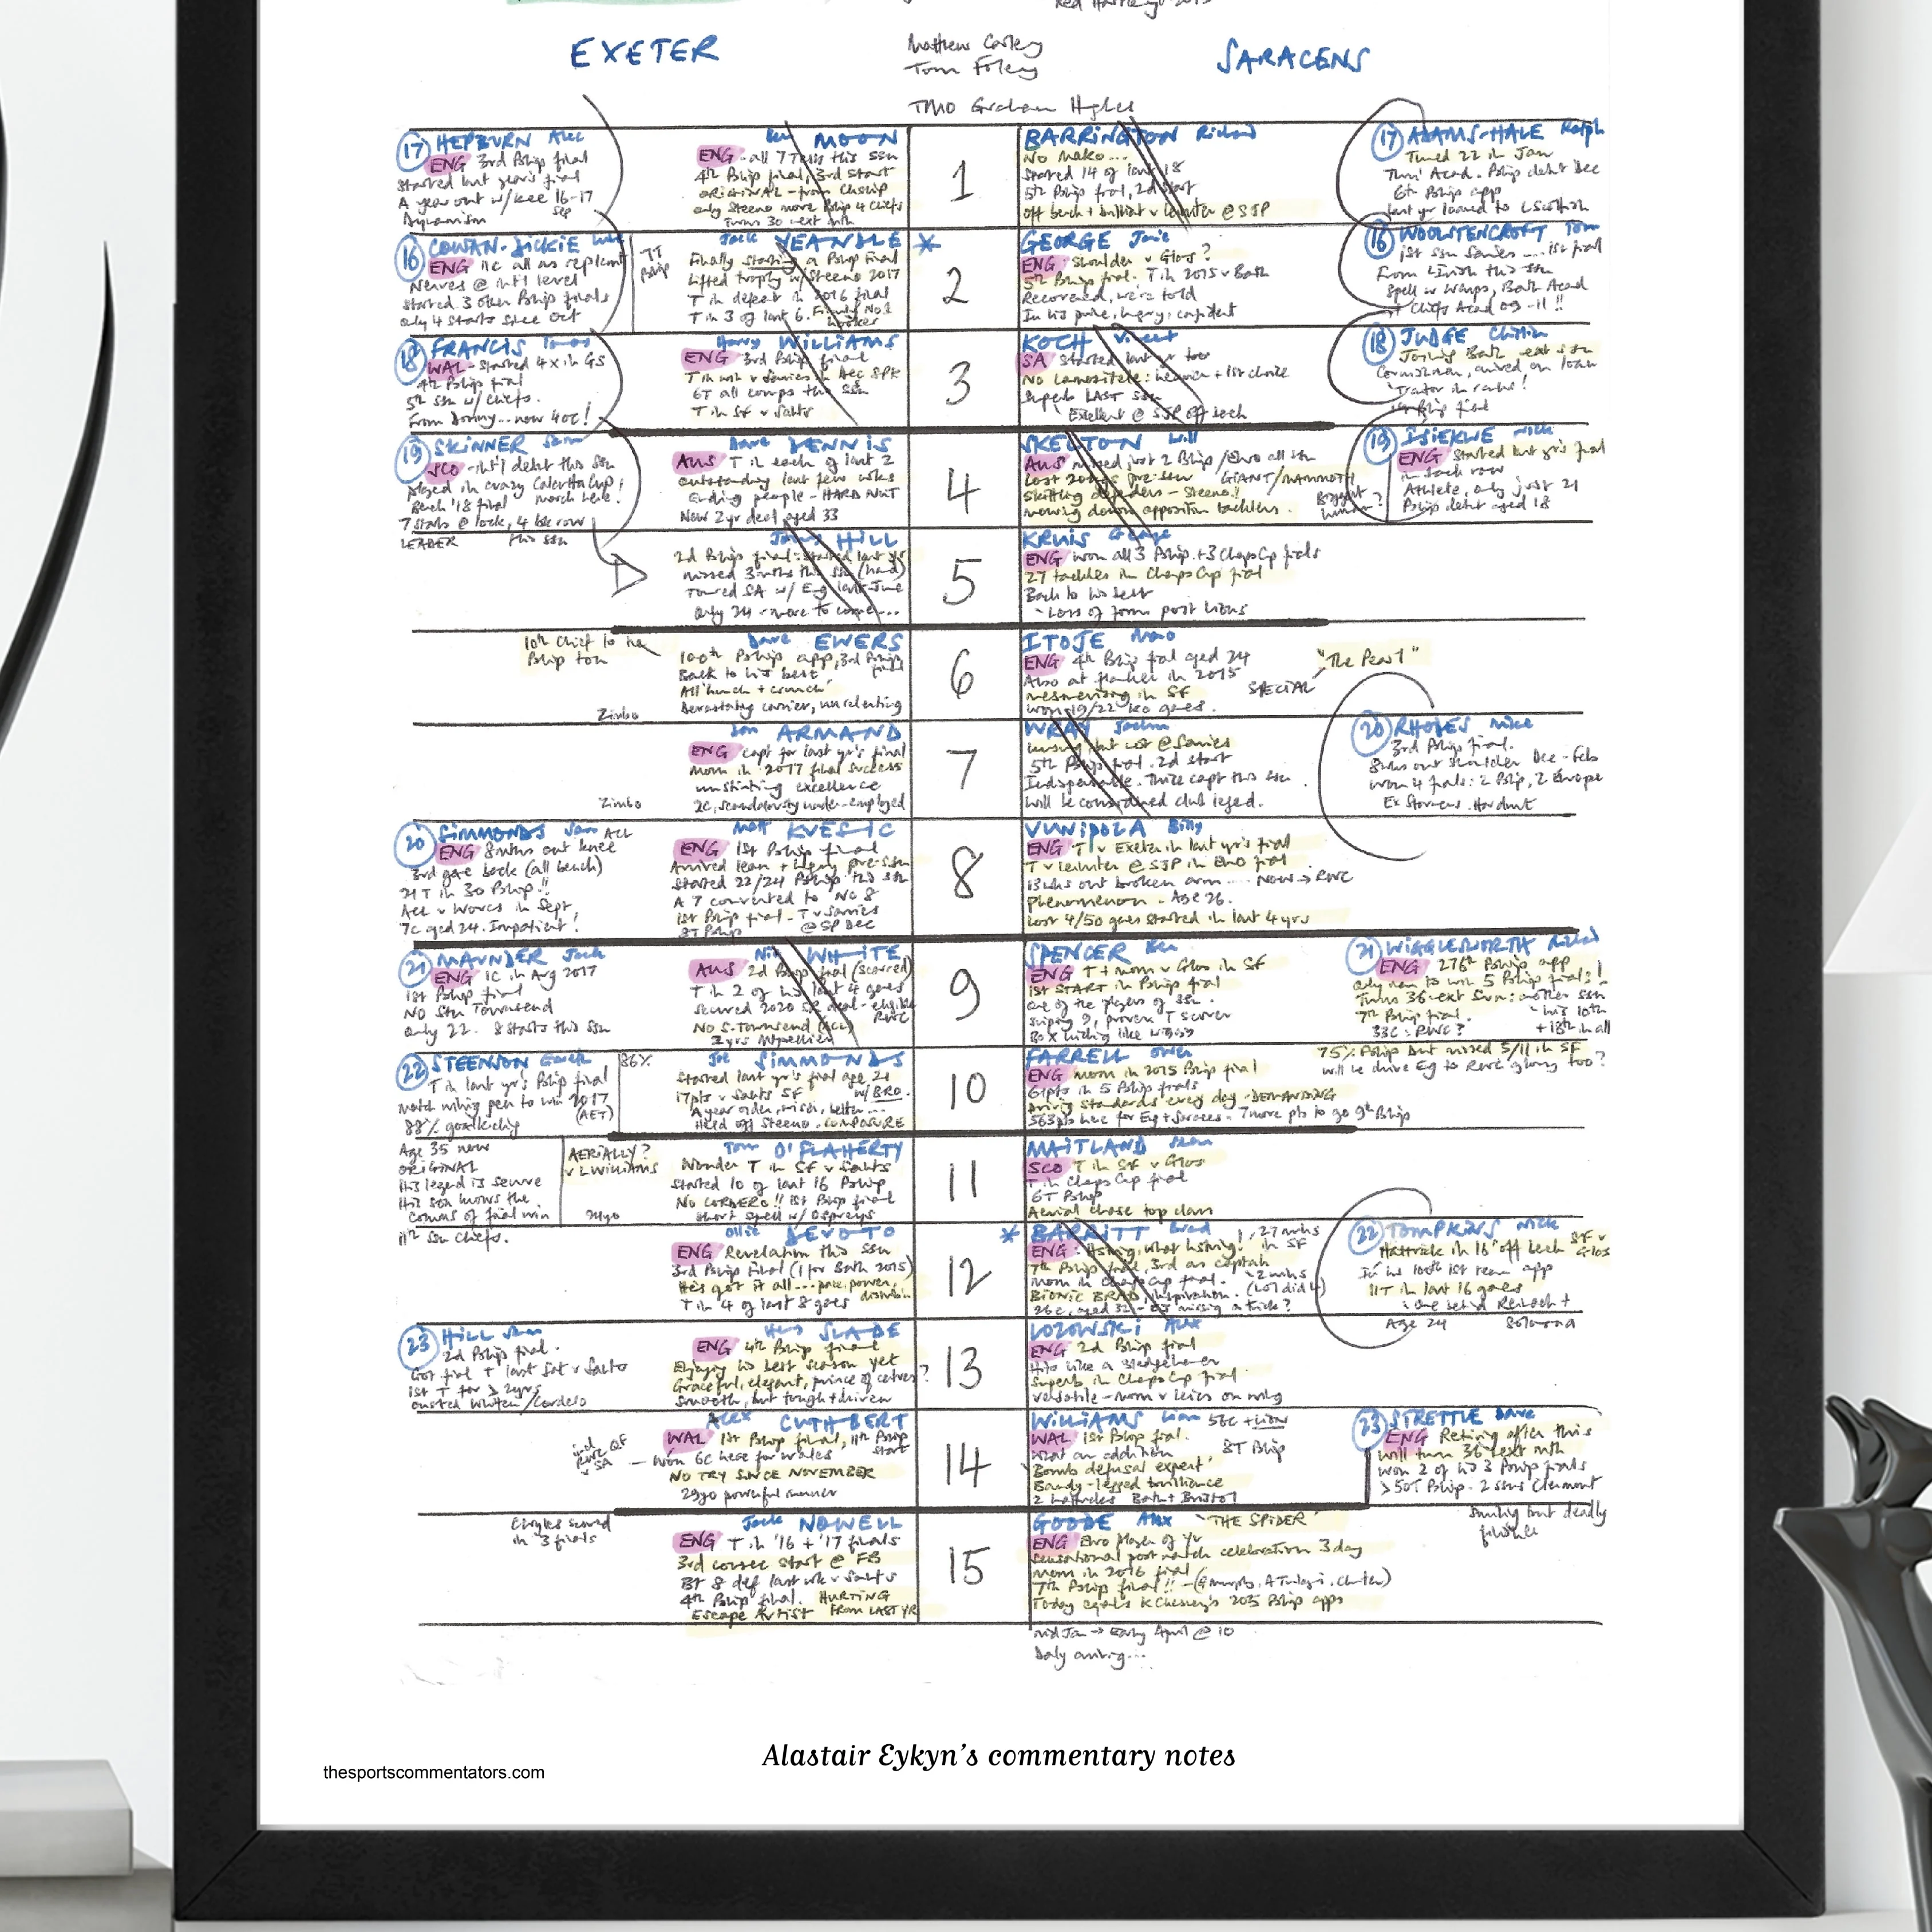 EXETER
Mathew Carley
Tom Foley
SARACENS
TMO Graham Hughes
17 HEPBURN Alec
ENG 3rd Pship final
Started last year's final
A year out w/knee 16-17
Sep
Dynamism
Ben MOON
ENG - all 7 Tests this ssn
4th Pship final, 3rd start
ORIGINAL - from Chship
only Steeno more Pship 4 Chiefs
Turns 30 next mth
1
BARRINGTON Richard
No Mako...
Started 14 of last 18
5th Pship final, 2d start
off bench + brilliant v Leinster @ SJP
17 ADAMS-HALE Ralph
Turned 22 in Jan
Thru' Acad. Pship debut Dec
6th Pship app
last yr loaned to L Scottish
16 COWAN-DICKIE Luke
ENG 11c all as replcmt
Nerves @ int'l level
Started 3 other Pship finals
only 4 starts since Oct
7T
Pship
Jack YEANDLE *
Finally starting a Pship final
Lifted trophy w/Steeno 2017
T in defeat in 2016 final
T in 3 of last 6. Firmly No1
hooker
2
GEORGE Jamie
ENG Shoulder v Glos?
5th Pship final. T in 2015 v Bath
Recovered, we're told
In his prime, hungry, confident
16 WOOLSTENCROFT Tom
1st ssn Saries .... 1st final
From L Irish this ssn
Spell w Wasps, Bath Acad
Chiefs Acad 09-11!!
18 FRANCIS Tomas
WAL - Started 4x in GS
4th Pship final
5th ssn w/ Chiefs.
From Donny... now 40c!
Harry WILLIAMS
ENG 3rd Pship final
T in win v Saries in Dec SPK
6T all comps this ssn
T in SF v Saints
3
KOCH Vincent
SA Started last yr too
No Lamositele: heavier + 1st choice
Superb LAST ssn
Excellent @ SJP off bench
18 JUDGE Christian
Joining Bath next ssn
Cornishman, arrived on loan
'Traitor in ranks!
1st Pship final
19 SKINNER Sam
SCO - int'l debut this ssn
played in crazy Calcutta Cup
Bench '18 final March here!
7 starts @ lock, 4 bk row
LEADER this ssn
Dave DENNIS
AUS T in each of last 2
outstanding last few wks
Ending people - HARD NUT
New 2yr deal, aged 33
4
SKELTON Will
AUS missed just 2 Pship / Euro all ssn
Lost 20kgs pre-ssn GIANT/MAMMOTH
Skittling defenders - Steeno!!
mowing down opposition tacklers.
Biggest
human?
19 ISIEKWE Nick
ENG Started last yr's final
in back row
Athlete, only just 21
Pship debut aged 18
Jonny HILL
2d Pship final: started last yr's
missed 3 mths this ssn (hand)
Toured SA w/ Eng last June
only 24 - more to come...
5
KRUIS George
ENG won all 3 Pship + 3 Champs Cup finals
27 tackles in Champs Cup final
Back to his best
- Loss of form post Lions
10th Chief to the
Pship ton
Zimbo
Dave EWERS
100th Pship app, 3rd Pship
final
Back to his best
All 'hunch + crunch'
Devastating carrier, unrelenting
6
ITOJE Maro
ENG 4th Pship final aged 24
Also at flanker in 2015
mesmerising in SF
won 19/22 KO games.
"The Pearl"
SPECIAL
Zimbo
Don ARMAND
ENG Capt for last yr's final
MOM in '2017 final success
unstinting excellence
2c, scandalously under-employed
7
WRAY Jackson
unsung, but not @ Saries
5th Pship final. 2d start
Indispensable. Thrice capt this ssn
Will be considered club legend.
20 RHODES Mike
3rd Pship final.
8wks out shoulder Dec-Feb
won 4 finals: 2 Pship, 2 Europe
Ex Stormers. Hardnut
20 SIMMONDS Sam ACL
ENG 8 mths out knee
3rd game back (all bench)
21T in 30 Pship!!
ACL v Worcs in Sept
7c aged 24. Impatient!
Matt KVESIC
ENG 1st Pship final
Arrived lean + hungry pre-ssn
Started 22/24 Pship this ssn
A 7 converted to No 8
1st Pship final - T v Saries
8T Pship @ SP Dec
8
VUNIPOLA Billy
ENG T v Exeter in last yr's final
T v Leinster @ SJP in Euro final
13wks out broken arm .... NOW → RWC
Phenomenon - Age 26.
Lost 4/50 games started in last 4 yrs
21 MAUNDER Jack
ENG 1C in Arg 2017
1st Pship final
NO Stu Townsend
only 22. 8 starts this ssn
Nic WHITE
AUS 2d Pship final (scored)
T in 2 of his last 4 games
Secured 2020 SR deal - eligible
RWC
NO S.Townsend (ACL)
2yrs Montpellier
9
SPENCER Ben
ENG T + mom v Glos in SF
1st START in Pship final
one of the players of ssn.
Sniping 9, proven T scorer
Box kicking like Wiggy
21 WIGGLESWORTH Richard
ENG 276th Pship app
only man to win 5 Pship finals!
Turns 36 next Sun: another ssn
7th Pship final. - his 10th
33C: RWC? + 18th in all
22 STEENSON Gareth
T in last yr's Pship final
match winning pen to win 2017
(AET)
88% goalkicking
86%
Joe SIMMONDS
Started last yr's final age 21
17pts v Saints SF w/ BRO.
A year older, wiser, better...
Held off Steeno. COMPOSURE
10
FARRELL Owen
ENG mom in 2015 Pship final
61pts in 5 Pship finals
Driving standards every day - DEMANDING
563pts here for Eng + Saracens - 7 more pts to go 9th Pship
75% Pship but missed 5/11 in SF
will he drive Eng to RWC glory too?
Age 35 now
ORIGINAL
His legend is secure
This son knows the
contours of final win
11th ssn Chiefs.
AERIALLY?
v L Williams
24yo
Tom O'FLAHERTY
Wonder T in SF v Saints
Started 10 of last 16 Pship
NO CORDERO!! 1st Pship final
short spell w/ Ospreys
11
MAITLAND Sean
SCO T in SF v Glos
T in Champs Cup final
6T Pship
Aerial chase top class
Ollie DEVOTO
ENG Revelation this ssn
3rd Pship final (1 for Bath 2015)
He's got it all ... pace, power,
distribn.
T in 4 of last 8 games
12
* BARRITT Brad
ENG: Hamstring, what hamstring? 27 mins in SF
7th Pship final, 3rd as captain
Mom in Champs Cup final.
BIONIC BRAD, inspiration.
26c, aged 32 - EJ missing a trick?
22 TOMPKINS Nick
Hattrick in 16' off bench SF v Glos
in his 100th 1st team app
11T in last 16 games
Age 24
23 HILL Sam
2d Pship final.
Got final T last Sat v Saints
1st T for > 2yrs
ousted Whitten/Cordero
Henry SLADE
ENG 4th Pship final
Enjoying his best season yet
Graceful, elegant, prince of centres?
Smooth, but tough + driven
13
LOZOWSKI Alex
ENG 2d Pship final
Hits like a sledgehammer
Superb in Champs Cup final
Versatile - mom v Leics on wing
Alex CUTHBERT
WAL 1st Pship final, 11th Pship
start
Won 6c here for Wales
NO TRY SINCE NOVEMBER
29yo powerful runner
incl
RWC QF
v SA
14
WILLIAMS Liam 56c + Lions
WAL 1st Pship final.
What an addition 8T Pship
'Bomb defusal expert'
Bandy-legged brilliance
2 hattricks Bath + Bristol
23 STRETTLE Dave
ENG Retiring after this
Will turn 36 next mth
won 2 of his 3 Pship finals
>50T Pship - 2 ssns Clermont
Smiling but deadly
finisher
Chiefs scored
in '3 finals
Jack NOWELL
ENG T in '16 + '17 finals
3rd consec start @ FB
BT 8 def last wk v Saints
4th Pship final. HURTING
Escape Artist FROM LAST YR
15
GOODE Alex 'THE SPIDER'
ENG Euro player of Yr
Sensational post match celebration 3 day
Mom in 2016 final
7th Pship final!!
Today equals K Chesney's 205 Pship apps
mid Jan → Early April @ 10
Daly arriving...
Alastair Eykyn's commentary notes
thesportscommentators.com